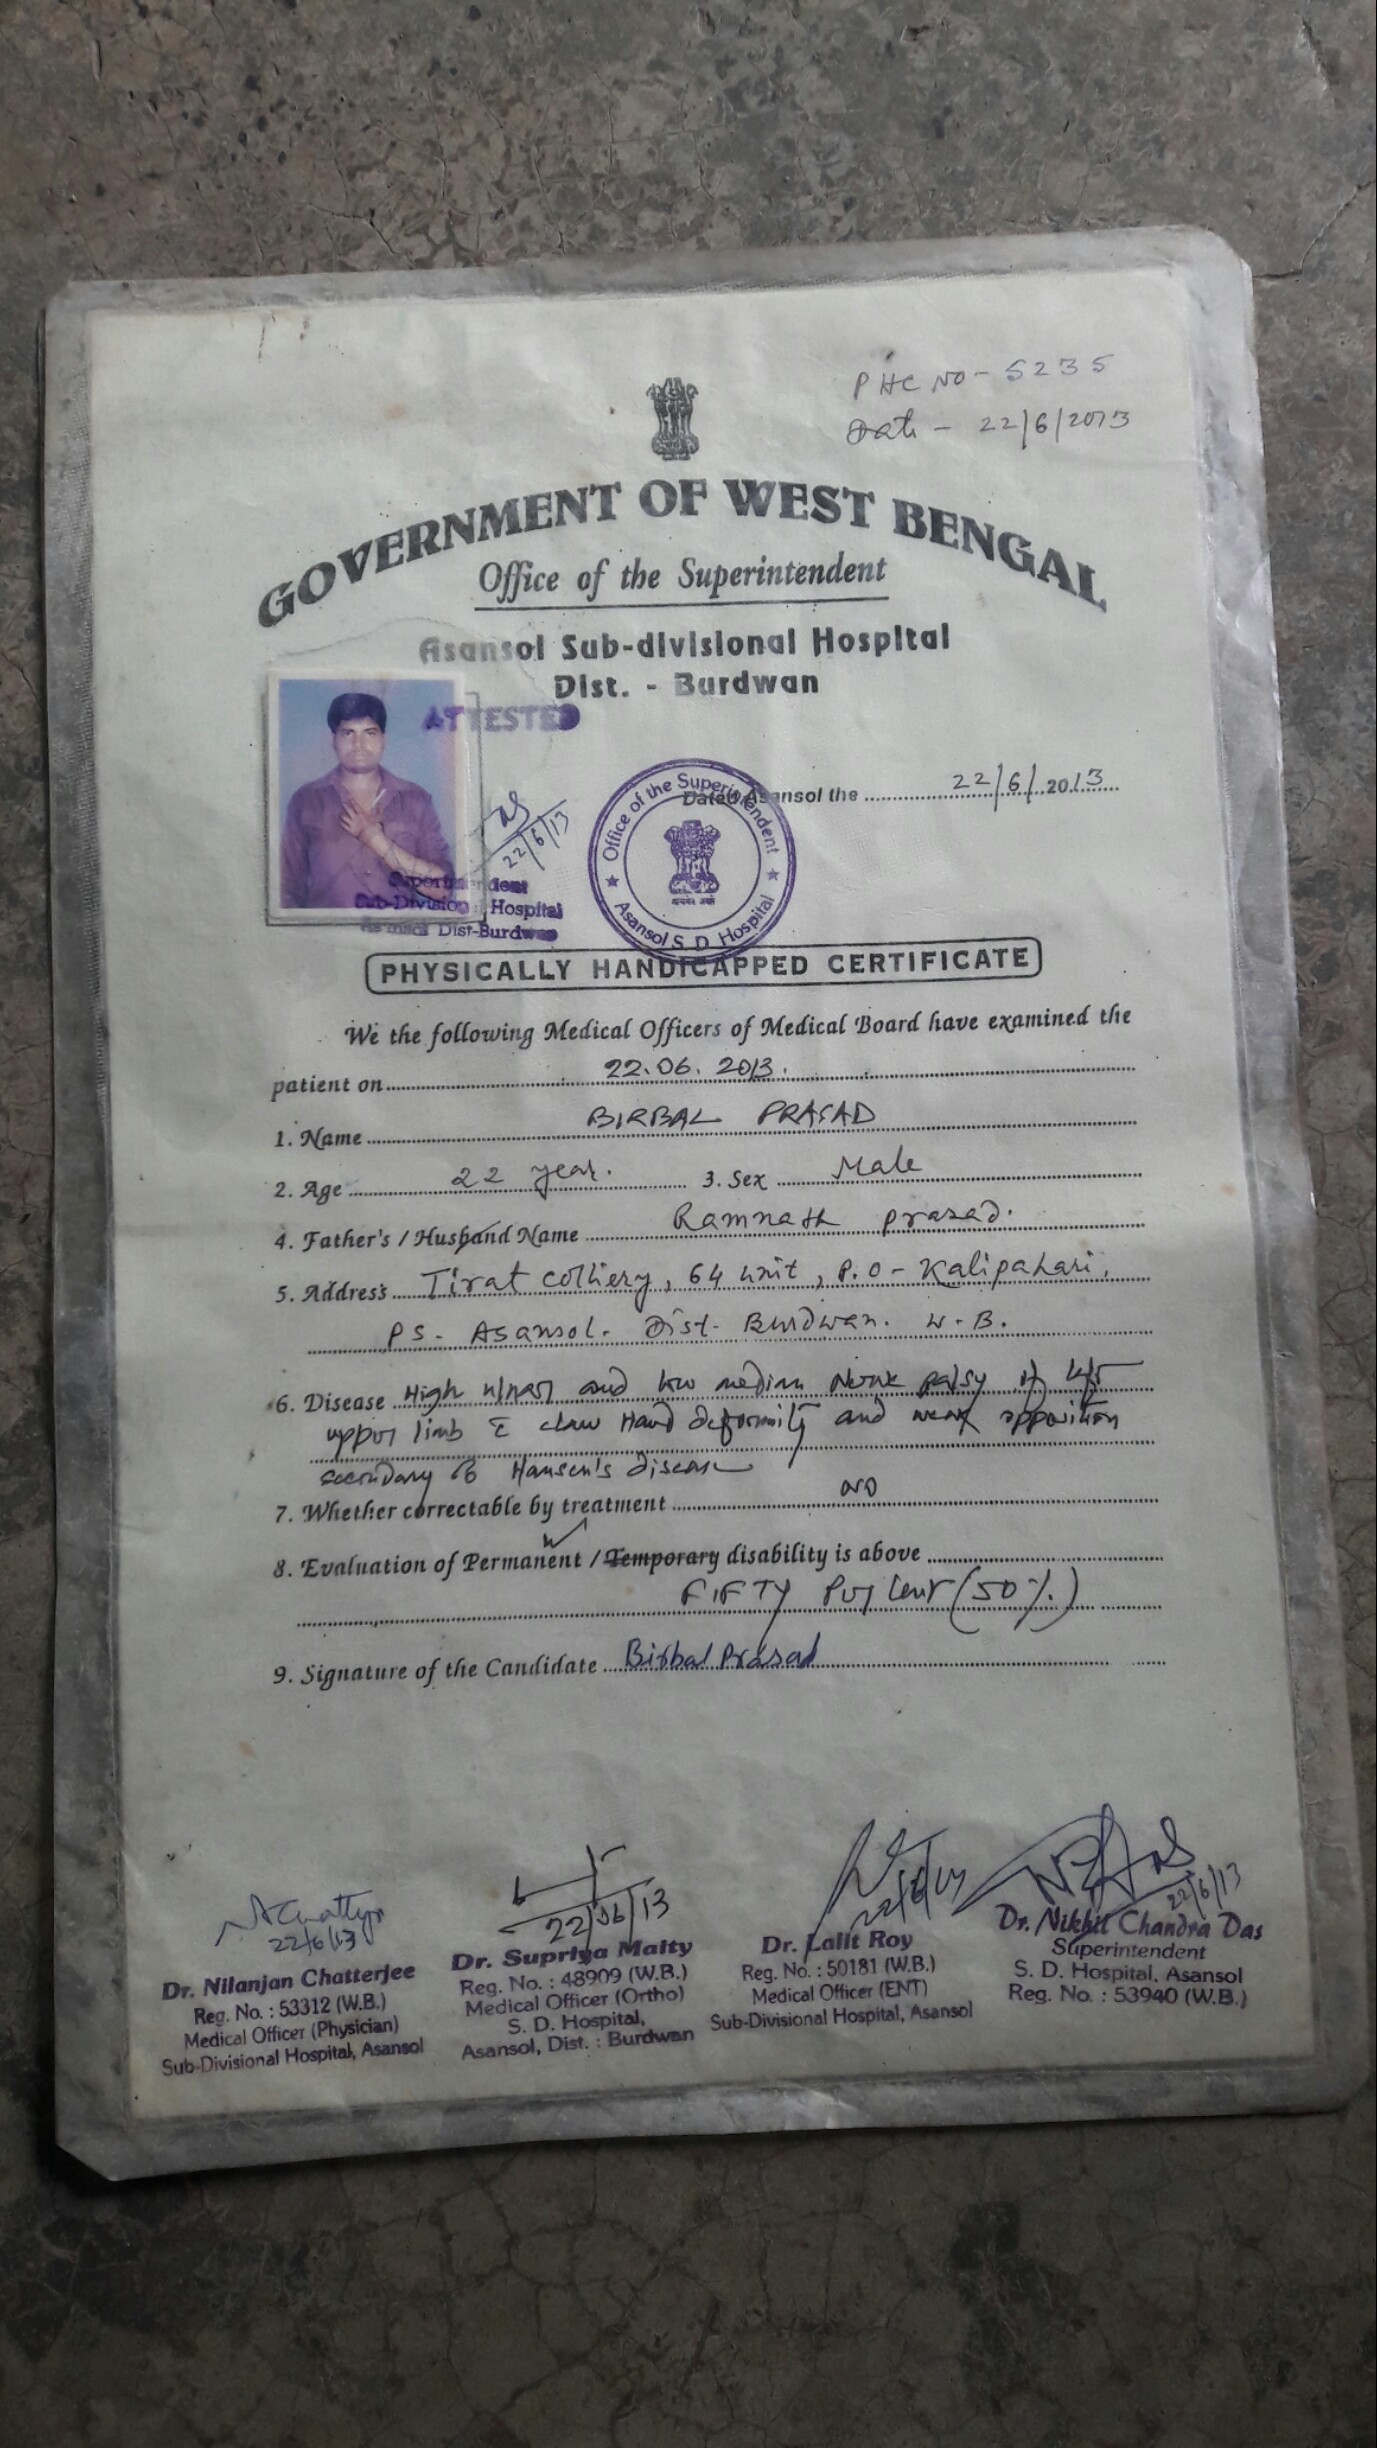 PHC NO - 5235
Date - 22/6/2013
GOVERNMENT OF WEST BENGAL
Office of the Superintendent
Asansol Sub-divisional Hospital
Dist. - Burdwan
ATTESTED
22/6/13
Superintendent
Sub-Division Hospital
Asansol Dist-Burdwan
Office of the Superintendent
Asansol S. D. Hospital
Dated Asansol the 22/6/2013
PHYSICALLY HANDICAPPED CERTIFICATE
We the following Medical Officers of Medical Board have examined the
patient on 22.06.2013.
1. Name BIRBAL PRASAD
2. Age 22 year. 3. Sex Male
4. Father's / Husband Name Ramnath prasad.
5. Address Tirat colliery, 64 unit, P.O - Kalipahari,
PS - Asansol. Dist - Burdwan. W.B.
6. Disease High ulnar and low median nerve palsy of left
upper limb c̄ claw Hand deformity and weak opposition
secondary to Hansen's disease
7. Whether correctable by treatment NO
8. Evaluation of Permanent / Temporary disability is above
FIFTY Per cent (50%)
9. Signature of the Candidate Birbal Prasad
22/6/13
Dr. Nilanjan Chatterjee
Reg. No. : 53312 (W.B.)
Medical Officer (Physician)
Sub-Divisional Hospital, Asansol
22/06/13
Dr. Supriya Maity
Reg. No. : 48909 (W.B.)
Medical Officer (Ortho)
S. D. Hospital,
Asansol, Dist. : Burdwan
Dr. Lalit Roy
Reg. No. : 50181 (W.B.)
Medical Officer (ENT)
Sub-Divisional Hospital, Asansol
22/6/13
Dr. Nikhil Chandra Das
Superintendent
S. D. Hospital, Asansol
Reg. No. : 53940 (W.B.)